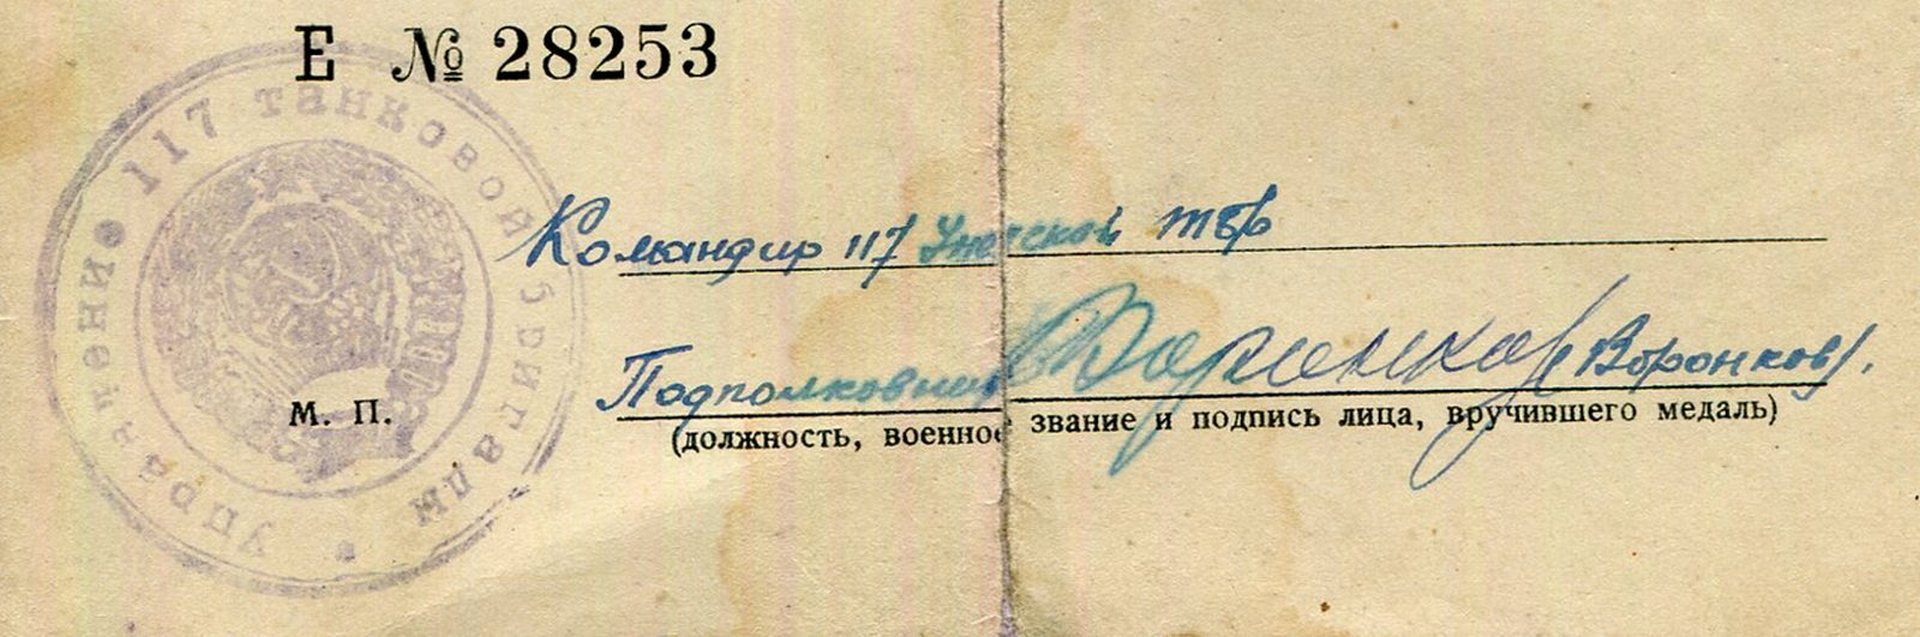 Е № 28253
управление 117 танковой бригады
Командир 117 Унечской тбр
Подполковник Воронков (Воронков).
М. П.
(должность, военное звание и подпись лица, вручившего медаль)